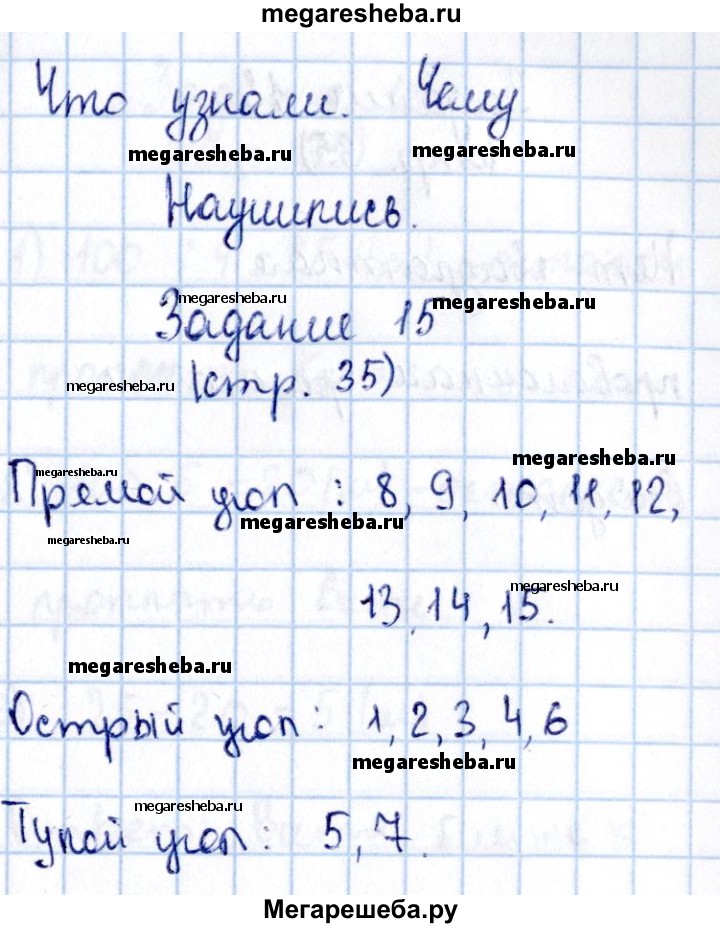 megaresheba.ru
Что узнали. Чему
megaresheba.ru megaresheba.ru
Научились.
megaresheba.ru megaresheba.ru
Задание 15
megaresheba.ru (стр. 35)
megaresheba.ru megaresheba.ru
Прямой угол : 8, 9, 10, 11, 12,
megaresheba.ru
megaresheba.ru
megaresheba.ru
13, 14, 15.
megaresheba.ru
Острый угол : 1, 2, 3, 4, 6
megaresheba.ru
megaresheba.ru
Тупой угол : 5, 7.
Мегарешеба.ру